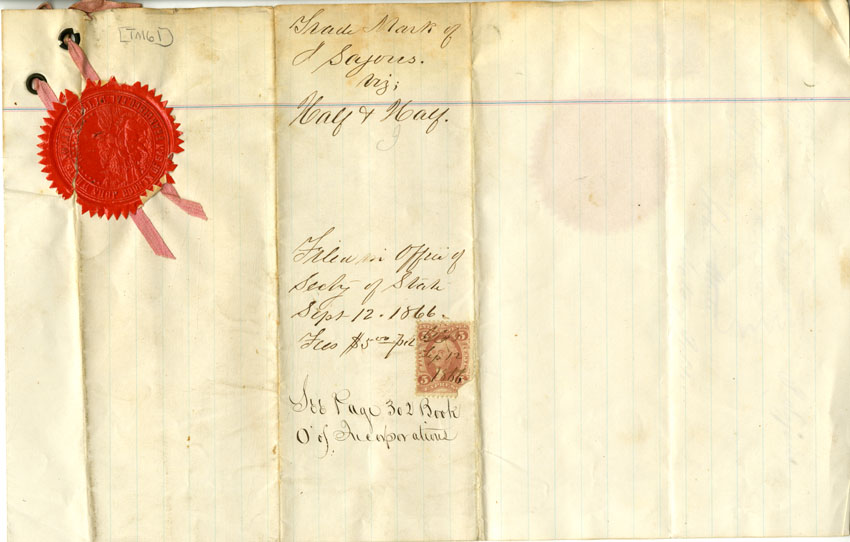 [TM161]
Trade Mark of
J Sajous.
viz;
Half & Half.
Filed in Office of
Secty of State
Sept 12. 1866.
Fees $5 00 pd
5 5
Sep 12
1866
See Page 302 Book
O of Incorporations